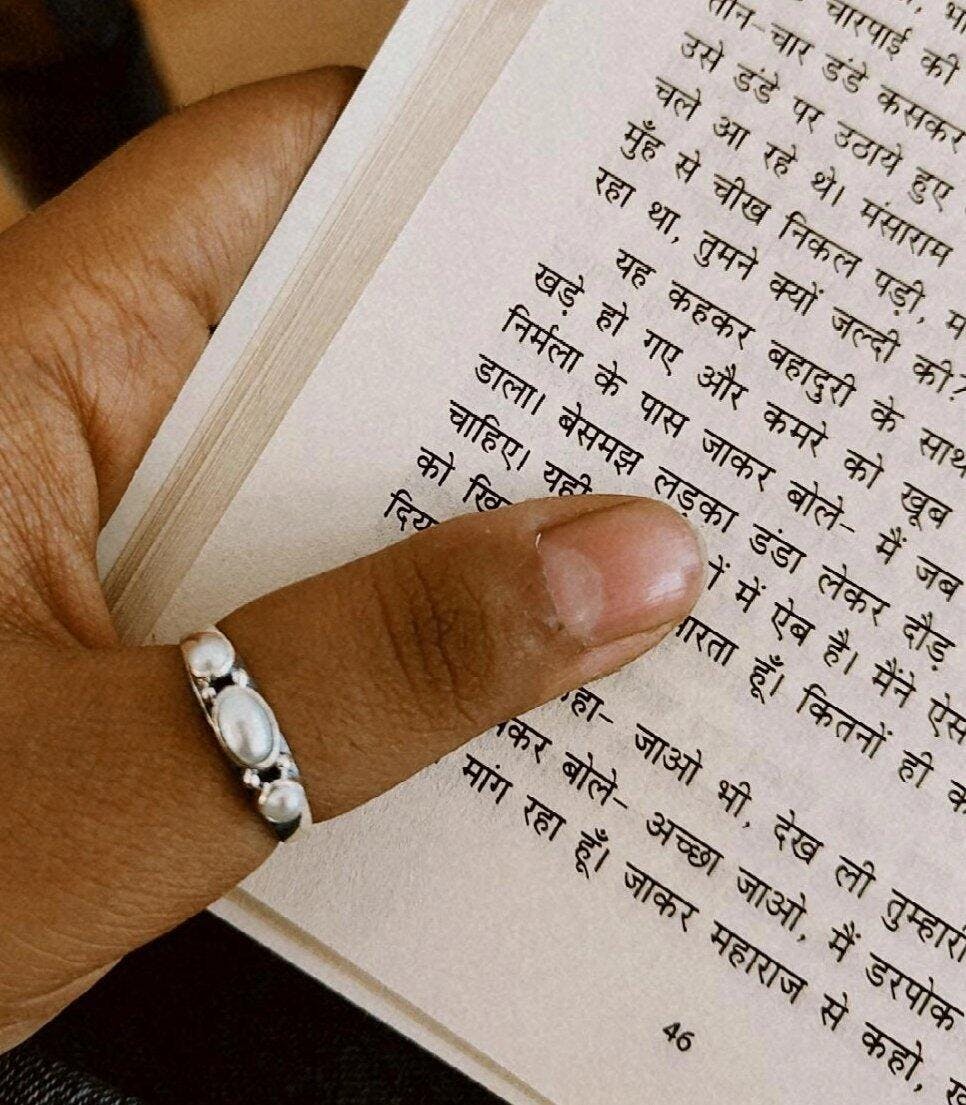 चारपाई की
तीन-चार डंडे कसकर
उसे डंडे पर उठाये हुए
चले आ रहे थे। मंसाराम
मुँह से चीख निकल पड़ी,
रहा था, तुमने क्यों जल्दी की?
यह कहकर बहादुरी के साथ
खड़े हो गए और कमरे को खूब
निर्मला के पास जाकर बोले- मैं जब
डाला। बेसमझ लड़का डंडा लेकर दौड़
चाहिए। यही में ऐब है। मैंने
को हूँ। कितनों ही
जाओ भी, देख ली तुम्हारी
बोले- अच्छा जाओ, मैं डरपोक
मांग रहा हूँ। जाकर महाराज से कहो,
46